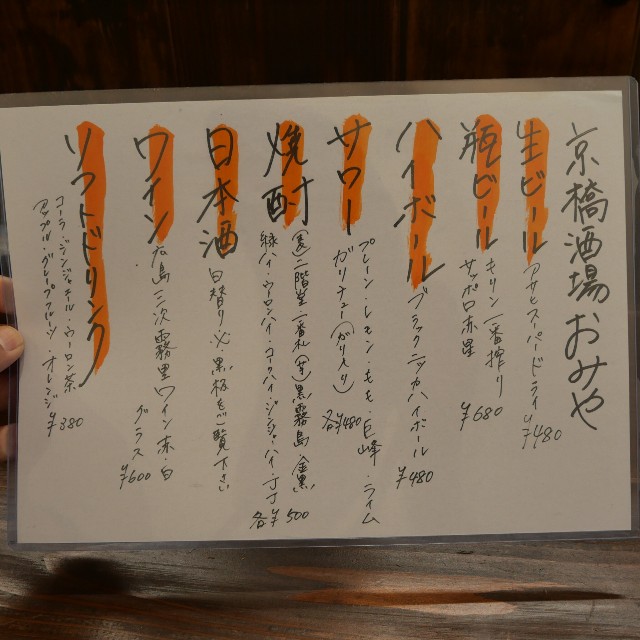 京橋酒場おみや
生ビール
アサヒスーパードライ ¥480
瓶ビール
キリン一番搾り
サッポロ赤星 ¥680
ハイボール
ブラックニッカハイボール ¥480
サワー
プレーン・レモン・もも・巨峰・ライム
ガリチュー(ガリ入り) 各¥480
焼酎
(麦)二階堂・一番札 (芋)黒霧島・金黒
緑ハイ・ウーロンハイ・コークハイ・ジンジャーハイ 各¥500
日本酒
日替り、黒板をご覧下さい
ワイン
広島三次霧里ワイン 赤・白
グラス ¥600
ソフトドリンク
コーラ・ジンジャエール・ウーロン茶
アップル・グレープフルーツ・オレンジ ¥380